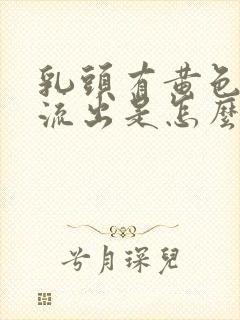 乳頭有黃色
流出是怎麼
兮月琛兒